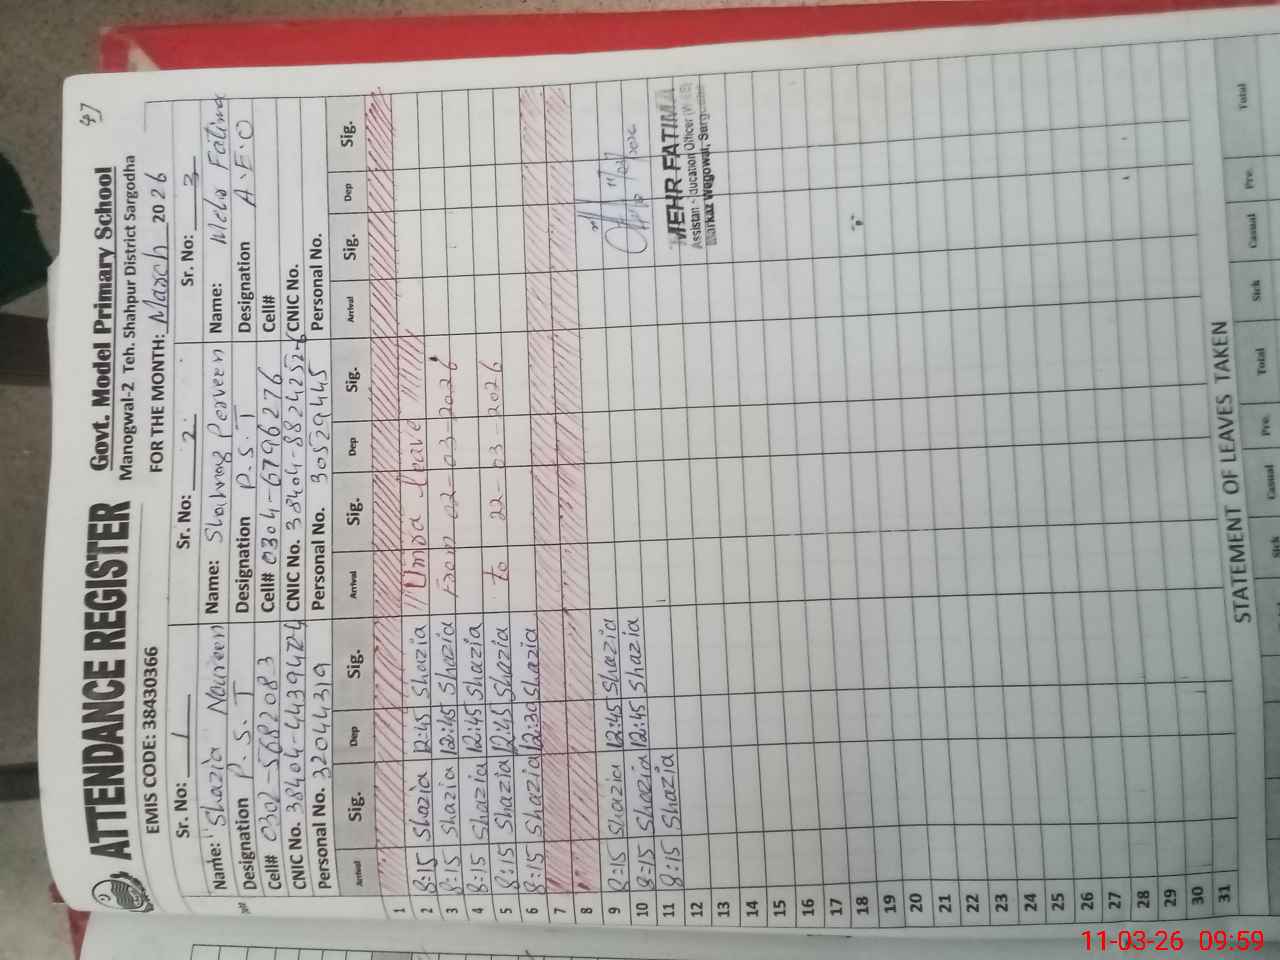 47
ATTENDANCE REGISTER Govt. Model Primary School
Manogwal-2 Teh. Shahpur District Sargodha
EMIS CODE: 38430366 FOR THE MONTH: March 2026
Sr. No: 1 Sr. No: 2 Sr. No: 3
Name: Shazia Noureen Name: Shahnaz Perveen Name: Fatima
Designation P.S.T Designation P.S.T Designation A.E.O
Cell# 0302-5682083 Cell# 0304-6796276 Cell#
CNIC No. CNIC No. CNIC No.
Personal No. 32044319 Personal No. 30529445 Personal No.
Arrival Sig. Dep Sig. Arrival Sig. Dep Sig. Arrival Sig. Dep Sig.
1
2 8:15 Shazia 12:45 Shazia Umra leave
3 8:15 Shazia 12:45 Shazia From 02-03-2026
4 8:15 Shazia 12:45 Shazia
5 8:15 Shazia 12:45 Shazia to 22-03-2026
6 8:15 Shazia 12:30 Shazia
7
8
9 8:15 Shazia 12:45 Shazia
10 8:15 Shazia 12:45 Shazia
11 8:15 Shazia MEHR FATIMA
12 Assistant Education Officer
13 Markaz Wegowal, Sargodha
14
15
16
17
18
19
20
21
22
23
24
25
26
27
28
29
30
31
STATEMENT OF LEAVES TAKEN
Sick Casual Pre. Total Sick Casual Pre. Total
11-03-26 09:59